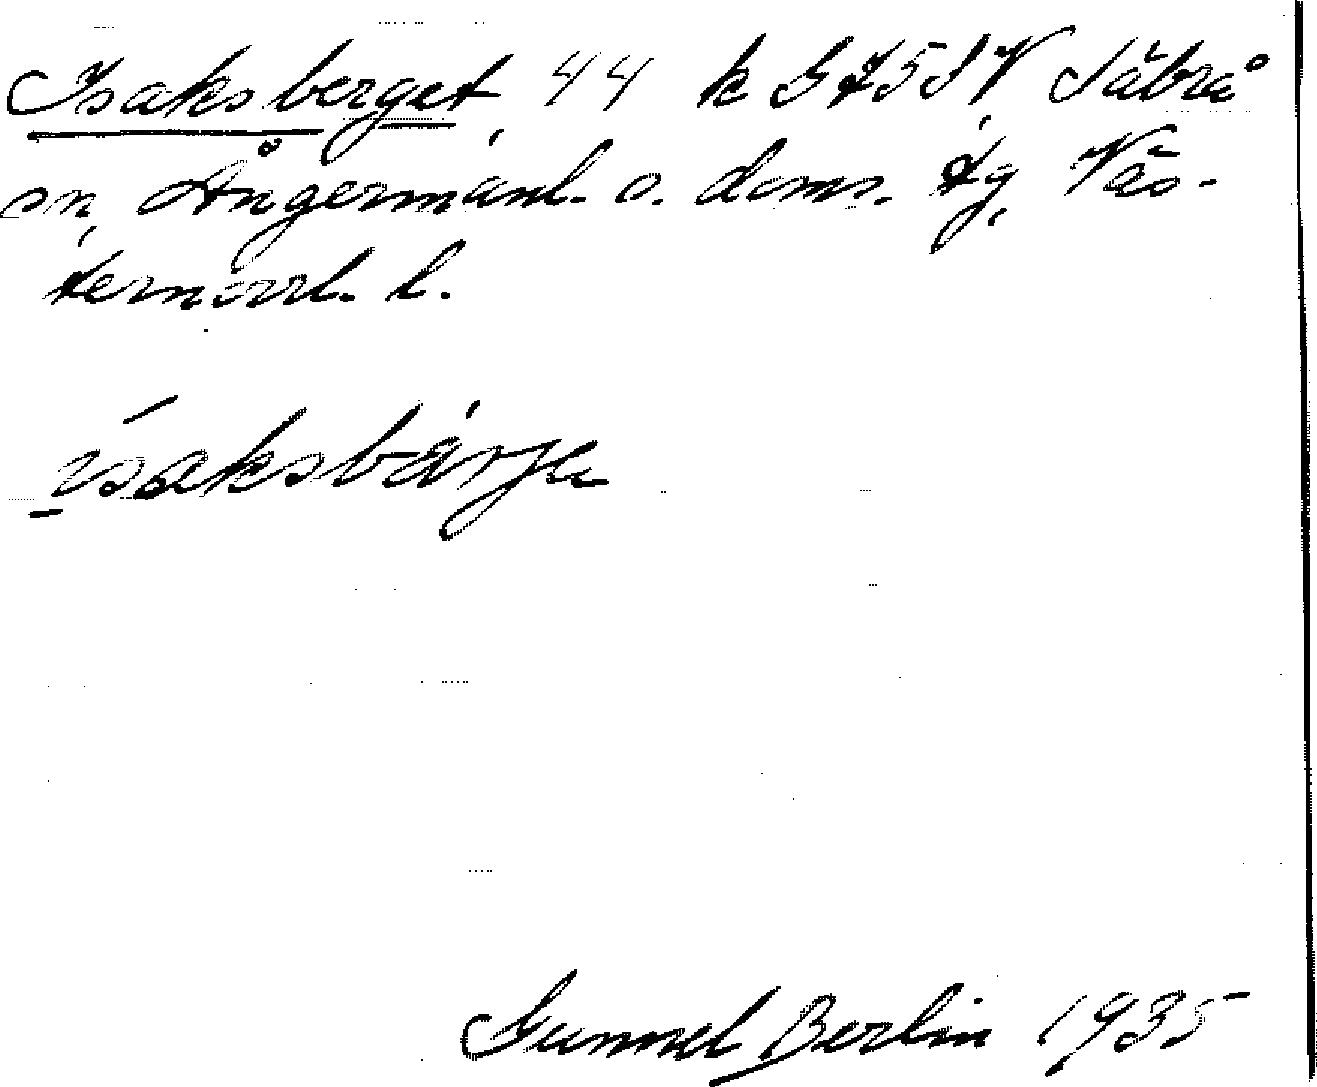 Isaksberget 44 k G75SV Säbrå
sn, Ångermanl. s. doms. tg, Väs-
ternorrl. l.
isaksbärje
Gunnel Berlin 1935